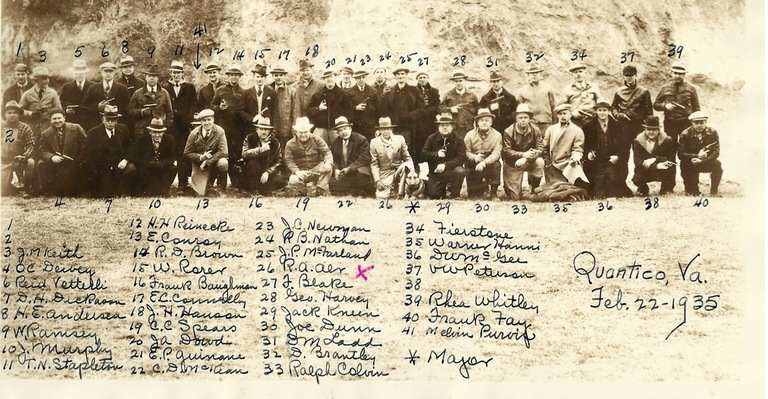 41
1 3 5 6 8 9 11 12 14 15 17 18 20 21 23 24 27 28 31 32 34 37 39
2
4 7 10 13 16 19 22 26 * 29 30 33 35 36 38 40
1
2
3 J.M Keith
4 O C Dewey
6 Reid Vetterli
7 D. H. Dickason
8 H. E. Andersen
9 W Ramsey
10 J. Murphy
11 T. N. Stapleton
12 H. H Reinecke
13 E. Conroy
14 R. D. Brown
15 W. Rorer
16 Frank Baughman
17 E. C. Connelley
18 J. H. Hanson
19 C. C Spears
20 Ja Dowd
21 E. P. Guinane
22 C. D. McKean
23 J. C. Newman
24 R B. Nathan
25 J. P. McFarland
26 R. A. Alt X
27 F Blake
28 Geo. Harvey
29 Jack Kneen
30 Joe Dunn
31 D M Ladd
32 D. Brantley
33 Ralph Colvin
34 Fierstone
35 Warner Hanni
36 Dwm Gee
37 VW Peterson
38
39 Rhea Whitley
40 Frank Fay
41 Melvin Purvis
* Major
Quantico, Va.
Feb. 22-1935